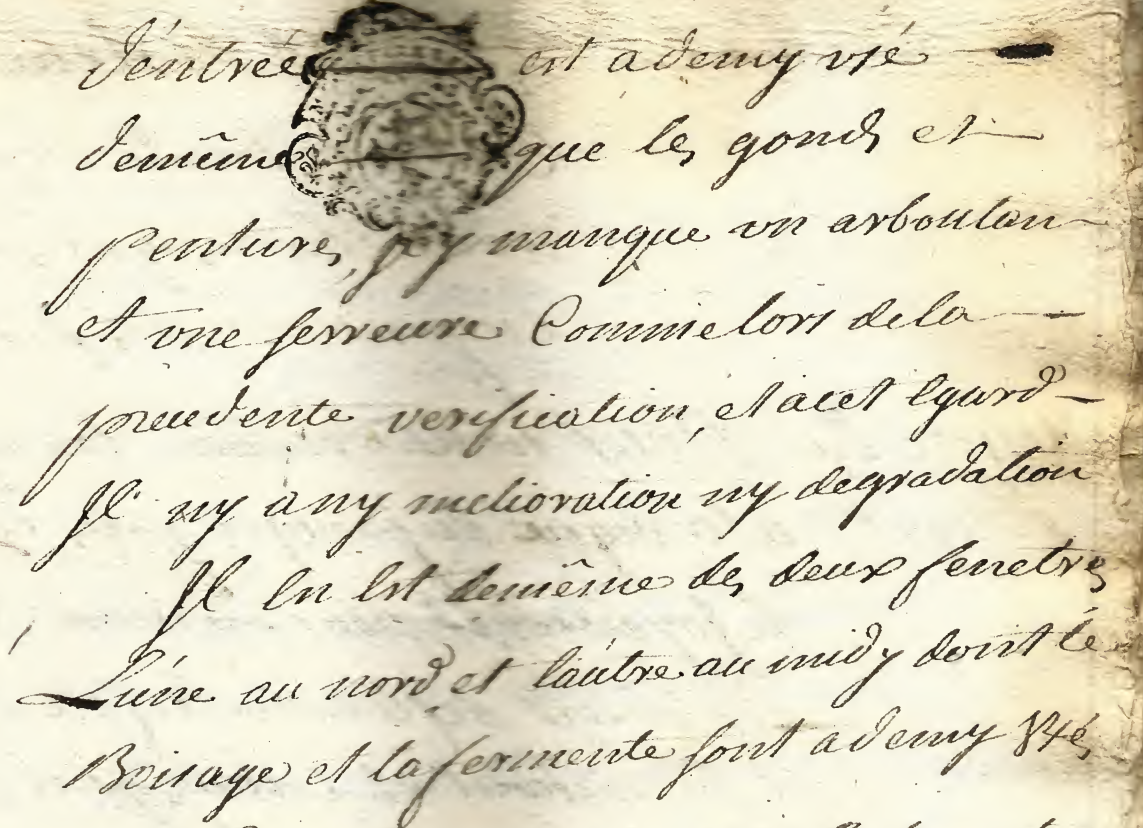 d'entrée est ademy usé
demême que les gonds et
pentures, il y manque un arboutan
et une serreure Comme lors dela
precedente verification, et acet Egard
Il ny any melioration ny degradation
Il En Est demême des deux fenetres
L'une au nord et l'autre au midy dont le
Boisage et la fermente sont ademy usés